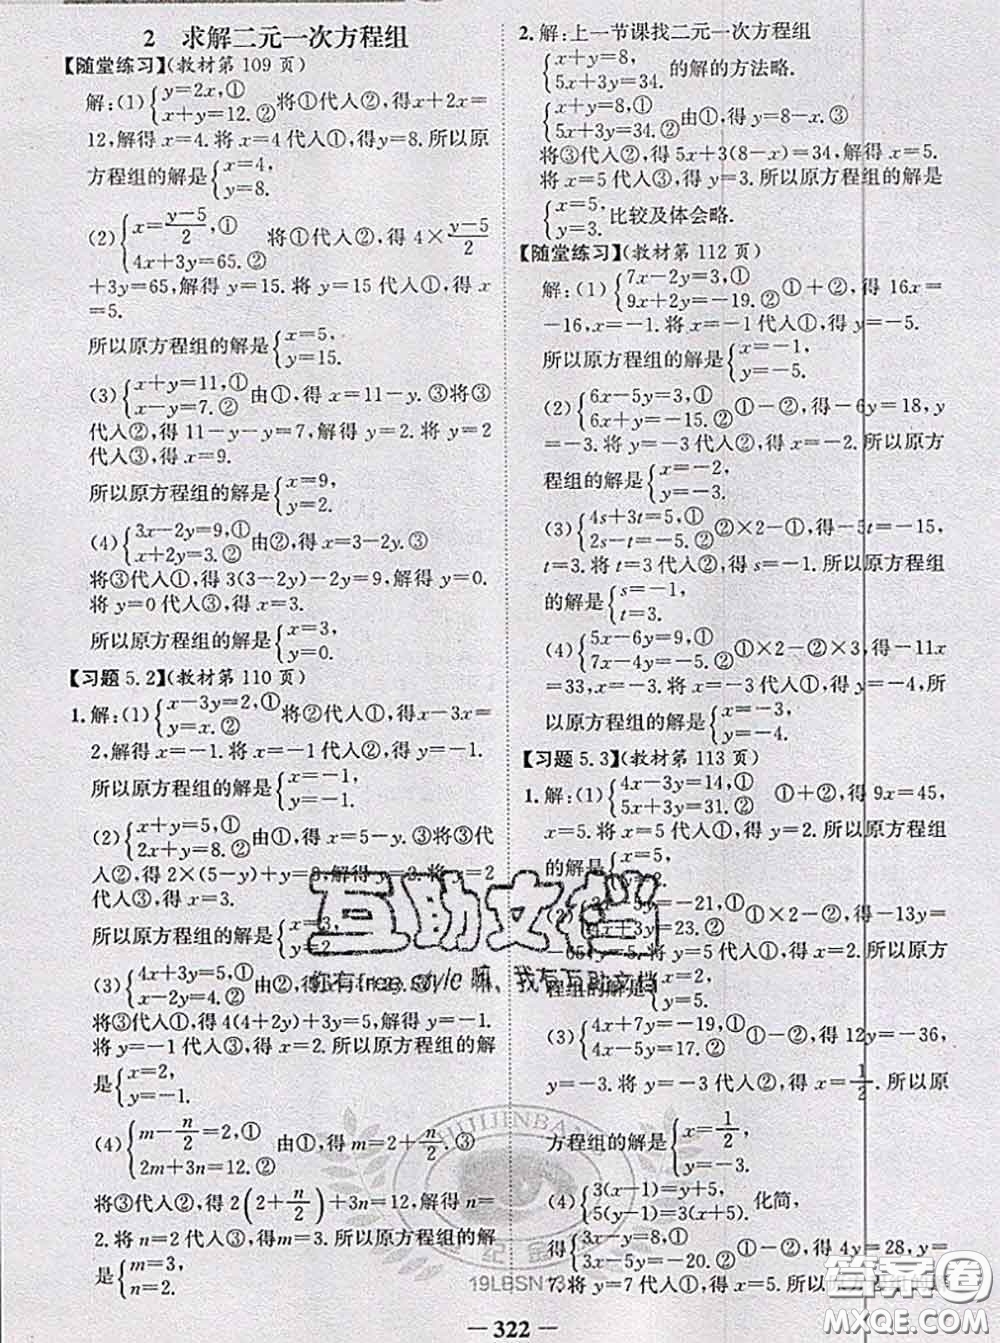 2 求解二元一次方程组
【随堂练习】(教材第 109 页)
解:(1){y=2x,① x+y=12.② 将①代人②,得x+2x=
12,解得 x=4.将 x=4 代人①,得y=8.所以原
方程组的解是{x=4, y=8.
(2){x=(y-5)/2,① 4x+3y=65.② 将①代人②,得 4×(y-5)/2
+3y=65,解得 y=15.将 y=15 代人①,得 x
=5.
所以原方程组的解是{x=5, y=15.
(3){x+y=11,① x-y=7.② 由①,得 x=11-y.③将③
代人②,得 11-y-y=7,解得 y=2.将 y=2
代人③,得 x=9.
所以原方程组的解是{x=9, y=2.
(4){3x-2y=9,① x+2y=3.② 由②,得 x=3-2y.③
将③代人①,得 3(3-2y)-2y=9,解得 y=0.
将 y=0 代人③,得 x=3.
所以原方程组的解是{x=3, y=0.
【习题 5.2】(教材第 110 页)
1.解:(1){x-3y=2,① y=x.② 将②代人①,得x-3x=
2,解得 x=-1.将 x=-1 代人②,得 y=-1.
所以原方程组的解是{x=-1, y=-1.
(2){x+y=5,① 2x+y=8.② 由①,得 x=5-y.③将③代
人②,得 2×(5-y)+y=8,解得 y=2.将 y=2
代人③,得 x=3.
所以原方程组的解是{x=3, y=2
(3){4x+3y=5,① x-2y=4.② 由②,得
将③代人①,得 4(4+2y)+3y=5,解得 y=-1.
将 y=-1 代人③,得 x=2.所以原方程组的解
是{x=2, y=-1.
(4){m-n/2=2,① 2m+3n=12.② 由①,得 m=2+n/2.③
将③代人②,得 2(2+n/2)+3n=12,解得 n=
2.将 n=2 代人③,得 m=3.所以原方程组的解
是{m=3, n=2.
2.解:上一节课找二元一次方程组
{x+y=8, 5x+3y=34. 的解的方法略.
{x+y=8,① 5x+3y=34.② 由①,得 y=8-x.③
将③代人②,得 5x+3(8-x)=34,解得 x=5.
将 x=5 代人③,得 y=3.所以原方程组的解是
{x=5, y=3. 比较及体会略.
【随堂练习】(教材第 112 页)
解:(1){7x-2y=3,① 9x+2y=-19.② ①+②,得 16x=
-16,x=-1.将 x=-1 代人①,得 y=-5.
所以原方程组的解是{x=-1, y=-5.
(2){6x-5y=3,① 6x+y=-15.② ①-②,得-6y=18,y
=-3.将 y=-3 代人②,得 x=-2.所以原方
程组的解是{x=-2, y=-3.
(3){4s+3t=5,① 2s-t=-5.② ②×2-①,得-5t=-15,
t=3.将 t=3 代人②,得 s=-1.所以原方程组
的解是{s=-1, t=3.
(4){5x-6y=9,① 7x-4y=-5.② ①×2-②×3,得-11x
=33,x=-3.将 x=-3 代人①,得 y=-4,所
以原方程组的解是{x=-3, y=-4.
【习题 5.3】(教材第 113 页)
1.解:(1){4x-3y=14,① 5x+3y=31.② ①+②,得 9x=45,
x=5.将 x=5 代人①,得 y=2.所以原方程组
的解是{x=5,
①-②,得-13y=
y=5.将 y=5 代人②,得 x=2.所以原方
程组的解是{x=2, y=5.
(3){4x+7y=-19,① 4x-5y=17.② ①-②,得 12y=-36,
y=-3.将 y=-3 代人②,得 x=1/2.所以原
方程组的解是{x=1/2, y=-3.
(4){3(x-1)=y+5,① 5(y-1)=3(x+5).② 化简,
7.将 y=7 代人①,得 x=5.所以
互助文档
你有freestyle嘛、我有互助文档
答案圈
MXQE.COM
19LBSN
322